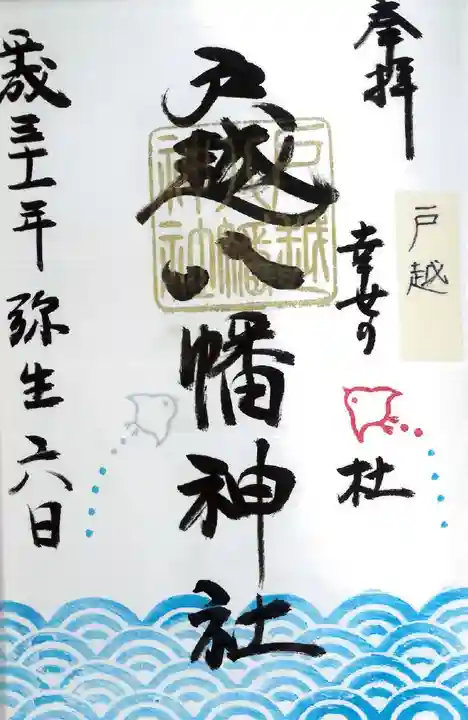 奉拝
戸越
幸せの
杜
戸越八幡神社
戸越
八幡
神社
平成三十一年弥生六日